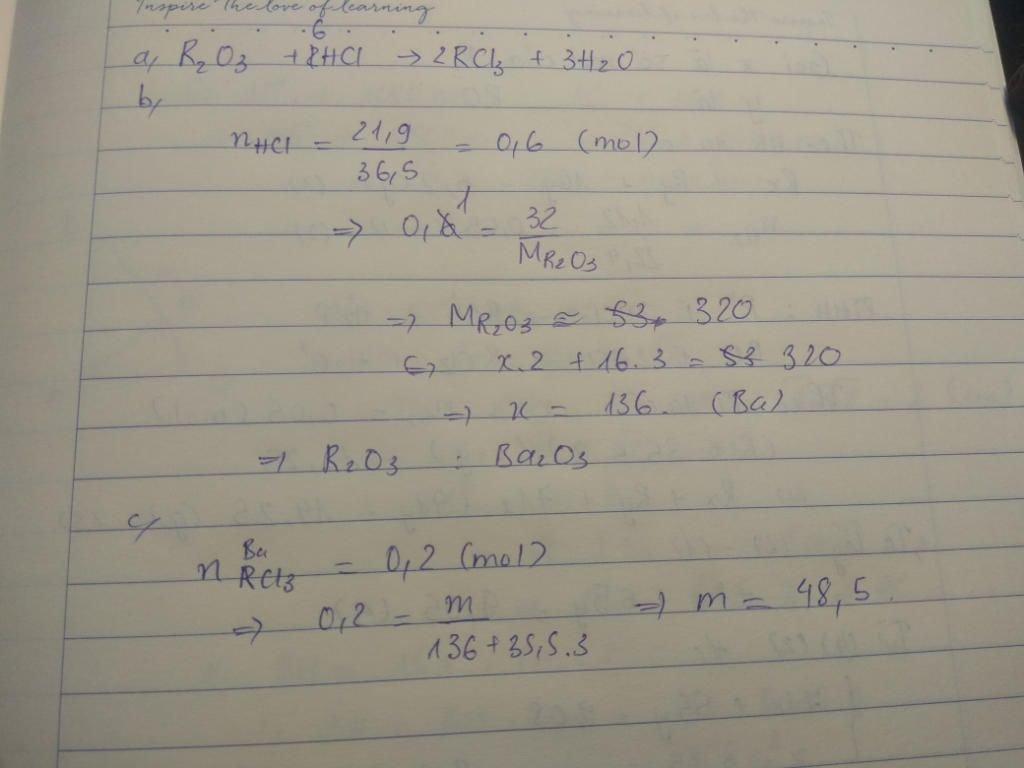 Inspire the love of learning
a, R2O3 + 6HCl → 2RCl3 + 3H2O
b,
nHCl = 21,9 / 36,5 = 0,6 (mol)
⇒ 0,1 = 32 / MR2O3
⇒ MR2O3 ≈ 320
⇔ x.2 + 16.3 = 320
⇒ x = 136. (Ba)
⇒ R2O3 : Ba2O3
c,
Ba
nRCl3 = 0,2 (mol)
⇒ 0,2 = m / 136 + 35,5.3 ⇒ m = 48,5.